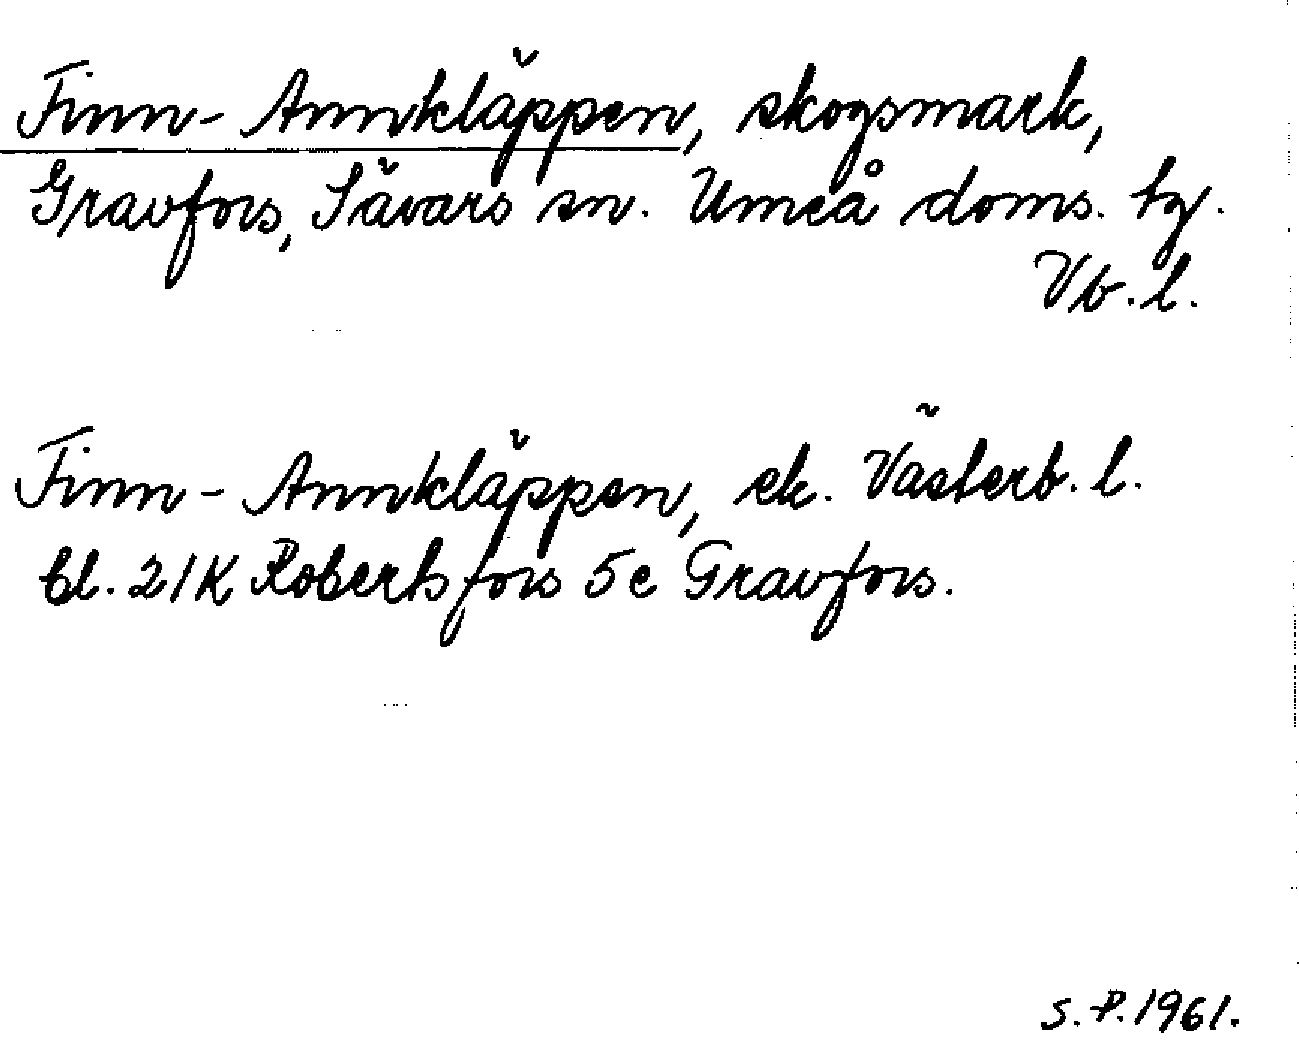 Finn-Annkläppen, skogsmark,
Gravfors, Sävars sn. Umeå doms. tg.
Vb. l.
Finn-Annkläppen, ek. Västerb. l.
bl. 21K Robertsfors 5c Gravfors.
S.P. 1961.